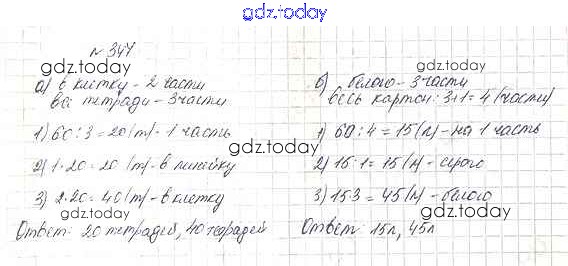 gdz.today
№ 347
gdz.today
а) в клетку - 2 части
все тетради - 3 части
1) 60 : 3 = 20 (т) - 1 часть
gdz.today
2) 1·20 = 20 (т) - в линейку
3) 2·20 = 40 (т) - в клетку
gdz.today
Ответ: 20 тетрадей, 40 тетрадей
gdz.today
б) белого - 3 части
весь картон: 3+1 = 4 (части)
1) 60 : 4 = 15 (л) - на 1 часть
gdz.today
2) 15·1 = 15 (л) - серого
3) 15·3 = 45 (л) - белого
gdz.today
Ответ: 15л, 45л
gdz.today